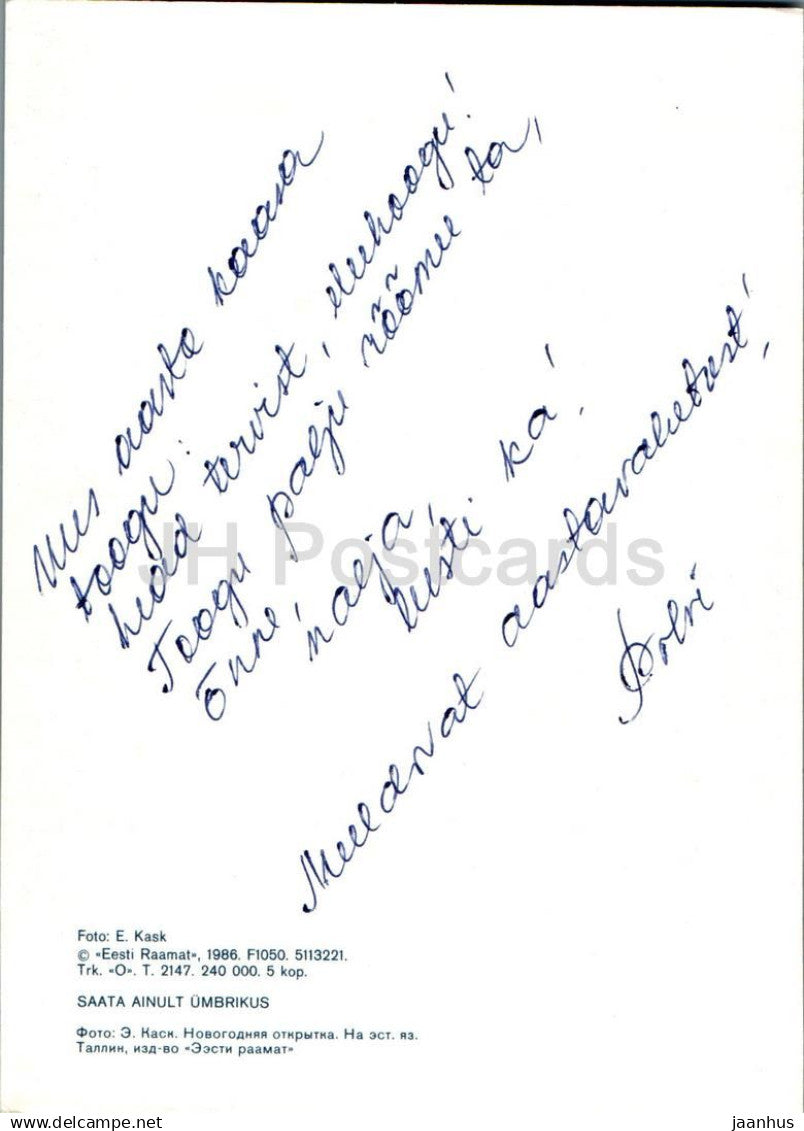 Uus aasta kaasa
toogu:
head tervist, eluhoogu!
Toogu palju rõõmu ta,
õnne, nalja,
lusti ka!
Meeldivat aastavahetust!
JH Postcards
Foto: E. Kask
© «Eesti Raamat», 1986. F1050. 5113221.
Trk. «O». T. 2147. 240 000. 5 kop.
SAATA AINULT ÜMBRIKUS
Фото: Э. Каск. Новогодняя открытка. На эст. яз.
Таллин, изд-во «Ээсти раамат»
jaanhus